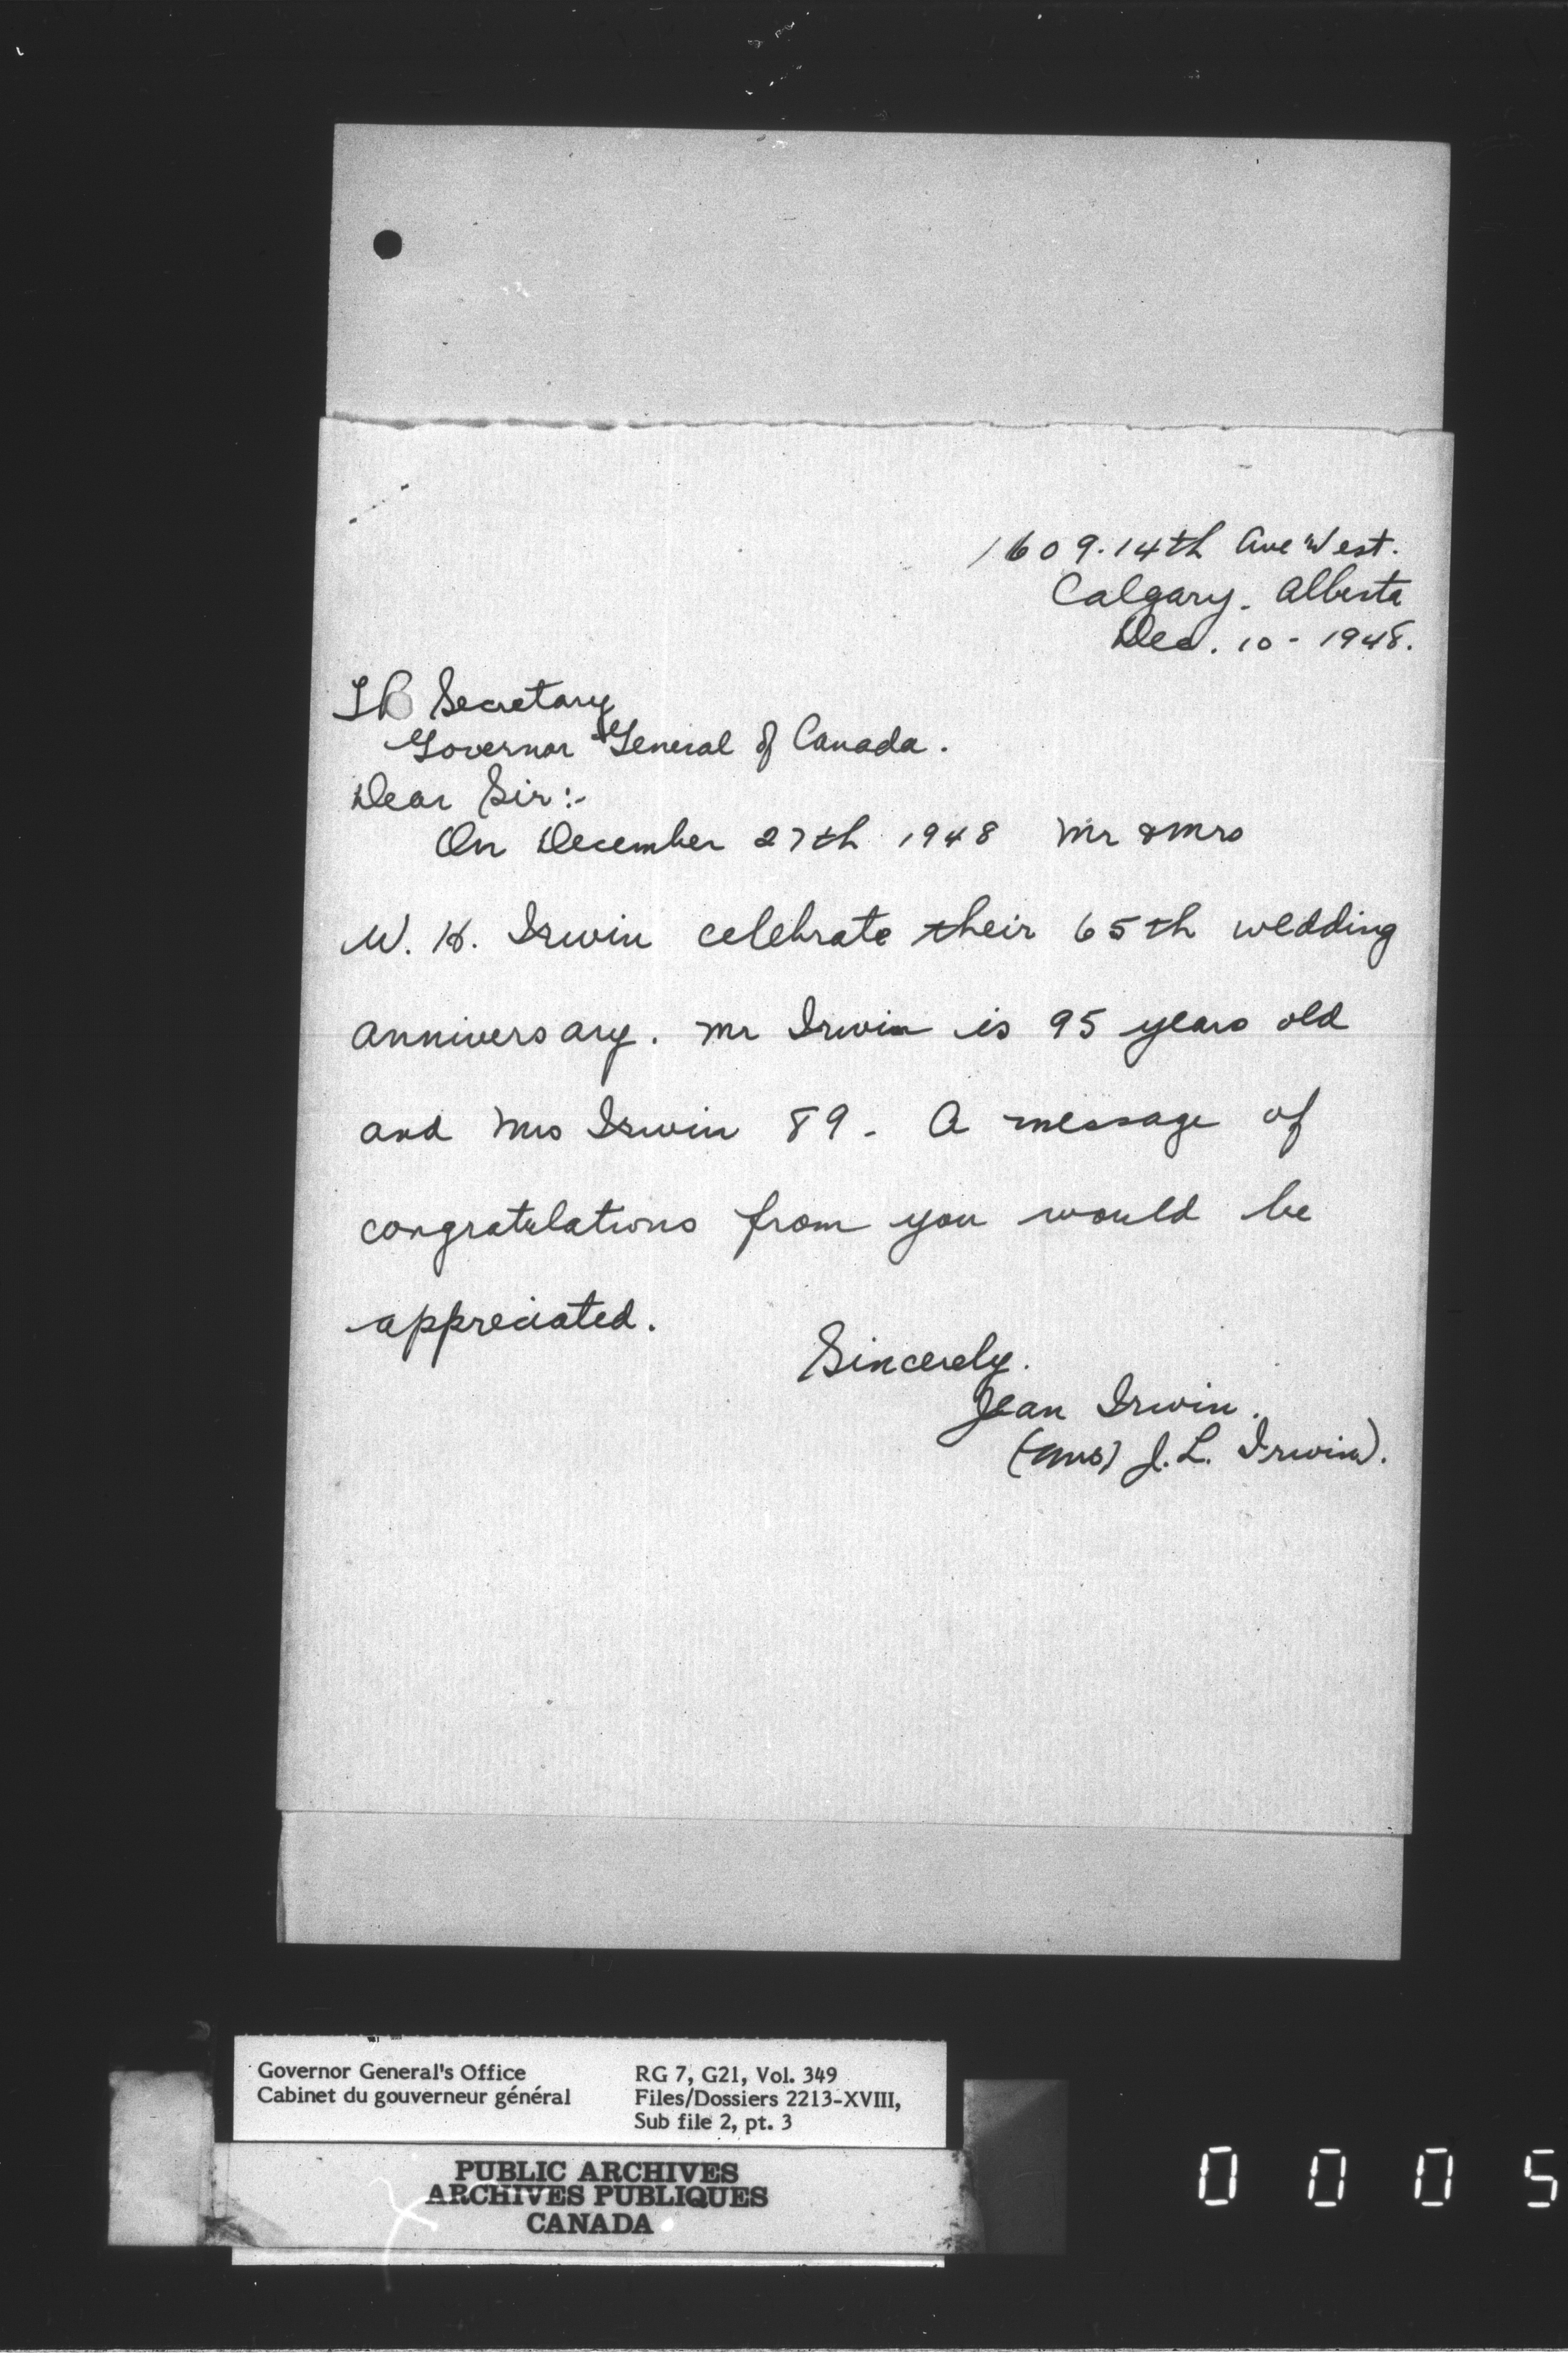 1609.14th Ave West.
Calgary. Alberta
Dec. 10 - 1948.
Secretary
Governor General of Canada.
Dear Sir:-
On December 27th 1948 Mr & Mrs
W. H. Irwin celebrate their 65th wedding
anniversary. Mr Irwin is 95 years old
and Mrs Irwin 89 - A message of
congratulations from you would be
appreciated.
Sincerely.
Jean Irwin.
(Mrs) J. L. Irwin).
Governor General's Office
Cabinet du gouverneur général
RG 7, G21, Vol. 349
Files/Dossiers 2213-XVIII,
Sub file 2, pt. 3
PUBLIC ARCHIVES
ARCHIVES PUBLIQUES
CANADA
0005